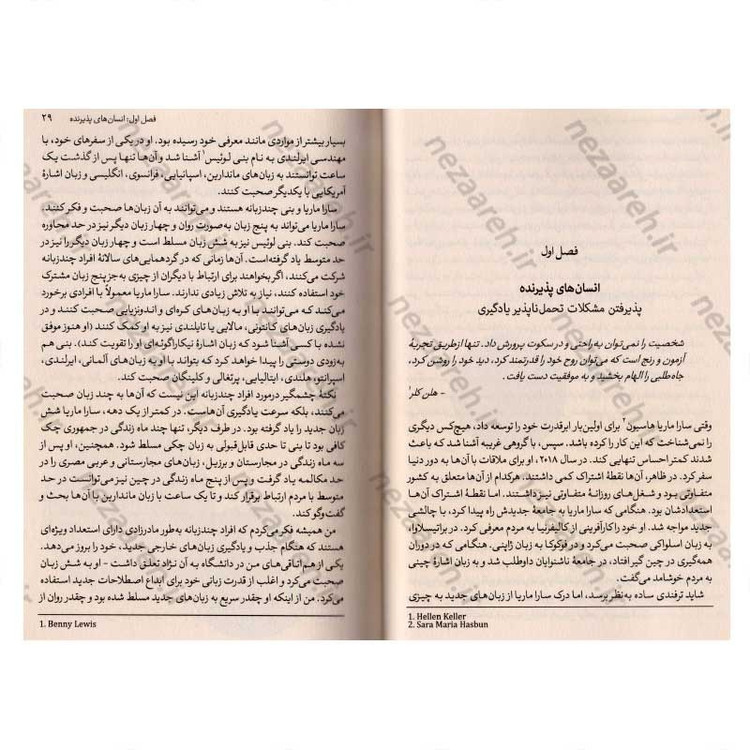 فصل اول
انسان‌های پذیرنده
پذیرفتن مشکلات تحمل‌ناپذیر یادگیری
شخصیت را نمی‌توان به‌راحتی و در سکوت پرورش داد. تنها ازطریق تجربهٔ
آزمون و رنج است که می‌توان روح خود را قدرتمند کرد، دید خود را روشن کرد،
جاه‌طلبی را الهام بخشید و به موفقیت دست یافت.
- هلن کلر۱
وقتی سارا ماریا هاسبون۲ برای اولین‌بار ابرقدرت خود را توسعه داد، هیچ‌کس دیگری
را نمی‌شناخت که این کار را کرده باشد. سپس، با گروهی غریبه آشنا شد که باعث
شدند کمتر احساس تنهایی کند. در سال ۲۰۱۸، او برای ملاقات با آن‌ها به دور دنیا
سفر کرد. در ظاهر، آن‌ها نقطهٔ اشتراک کمی داشتند. هرکدام از آن‌ها متعلق به کشور
متفاوتی بود و شغل‌های روزانهٔ متفاوتی نیز داشتند. اما نقطهٔ اشتراک آن‌ها
استعدادشان بود. هنگامی که سارا ماریا به جامعهٔ جدیدش راه پیدا کرد، با چالشی
جدید مواجه شد. او خود را کارآفرینی از کالیفرنیا به مردم معرفی کرد. در براتیسلاوا،
به زبان اسلواکی صحبت می‌کرد و در فوکوکا به زبان ژاپنی. هنگامی‌که در دوران
همه‌گیری در چین گیر افتاد، در جامعهٔ ناشنوایان داوطلب شد و به زبان اشارهٔ چینی
به مردم خوشامد می‌گفت.
شاید ترفندی ساده به‌نظر برسد، اما درک سارا ماریا از زبان‌های جدید به چیزی
1. Hellen Keller
2. Sara Maria Hasbun
فصل اول: انسان‌های پذیرنده ۲۹
بسیار بیشتر از مواردی مانند معرفی خود رسیده بود. او در یکی از سفرهای خود، با
مهندسی ایرلندی به نام بنی لوئیس۱ آشنا شد و آن‌ها تنها پس از گذشت یک
ساعت توانستند به زبان‌های ماندارین، اسپانیایی، فرانسوی، انگلیسی و زبان اشارهٔ
آمریکایی با یکدیگر صحبت کنند.
سارا ماریا و بنی چندزبانه هستند و می‌توانند به آن زبان‌ها صحبت و فکر کنند.
سارا ماریا می‌تواند به پنج زبان به‌صورت روان و چهار زبان دیگر نیز در حد محاوره
صحبت کند. بنی لوئیس نیز به شش زبان مسلط است و چهار زبان دیگر را نیز در
حد متوسط یاد گرفته‌است. آن‌ها زمانی که در گردهمایی‌های سالانهٔ افراد چندزبانه
شرکت می‌کنند، اگر بخواهند برای ارتباط با دیگران از چیزی به‌جز پنج زبان مشترک
خود استفاده کنند، نیاز به تلاش زیادی ندارند. سارا ماریا معمولاً با افرادی برخورد
می‌کند که می‌توانند با او به زبان‌های کره‌ای و اندونزیایی صحبت کنند و در
یادگیری زبان‌های کانتونی، مالایی یا تایلندی نیز به او کمک کنند (او هنوز موفق
نشده با کسی آشنا شود که زبان اشارهٔ نیکاراگوئه‌ای او را تقویت کند). بنی هم
به‌زودی دوستی را پیدا خواهد کرد که بتواند با او به زبان‌های آلمانی، ایرلندی،
اسپرانتو، هلندی، ایتالیایی، پرتغالی و کلینگان صحبت کند.
نکتهٔ چشمگیر درمورد افراد چندزبانه این نیست که آن‌ها به چند زبان صحبت
می‌کنند، بلکه سرعت یادگیری آن‌هاست. در کمتر از یک دهه، سارا ماریا شش
زبان جدید را یاد گرفته بود. در طرف دیگر، تنها چند ماه زندگی در جمهوری چک
کافی بود تا بنی تا حدی قابل‌قبولی به زبان چکی مسلط شود. همچنین، او پس از
سه ماه زندگی در مجارستان و برزیل، زبان‌های مجارستانی و عربی مصری را در
حد مکالمه یاد گرفت و پس از پنج ماه زندگی در چین نیز می‌توانست در حد
متوسط با مردم ارتباط برقرار کند و تا یک ساعت با زبان ماندارین با آن‌ها بحث و
گفت‌وگو کند.
من همیشه فکر می‌کردم که افراد چندزبانه به‌طور مادرزادی دارای استعداد ویژه‌ای
هستند که هنگام جذب و یادگیری زبان‌های خارجی جدید، خود را بروز می‌دهد.
یکی از هم‌اتاقی‌های من در دانشگاه به آن نژاد تعلق داشت - او به شش زبان
صحبت می‌کرد و اغلب از قدرت زبانی خود برای ابداع اصطلاحات جدید استفاده
می‌کرد. من از اینکه او چقدر سریع به زبان‌های جدید مسلط شده بود و چقدر روان از
1. Benny Lewis
nezaareh.ir